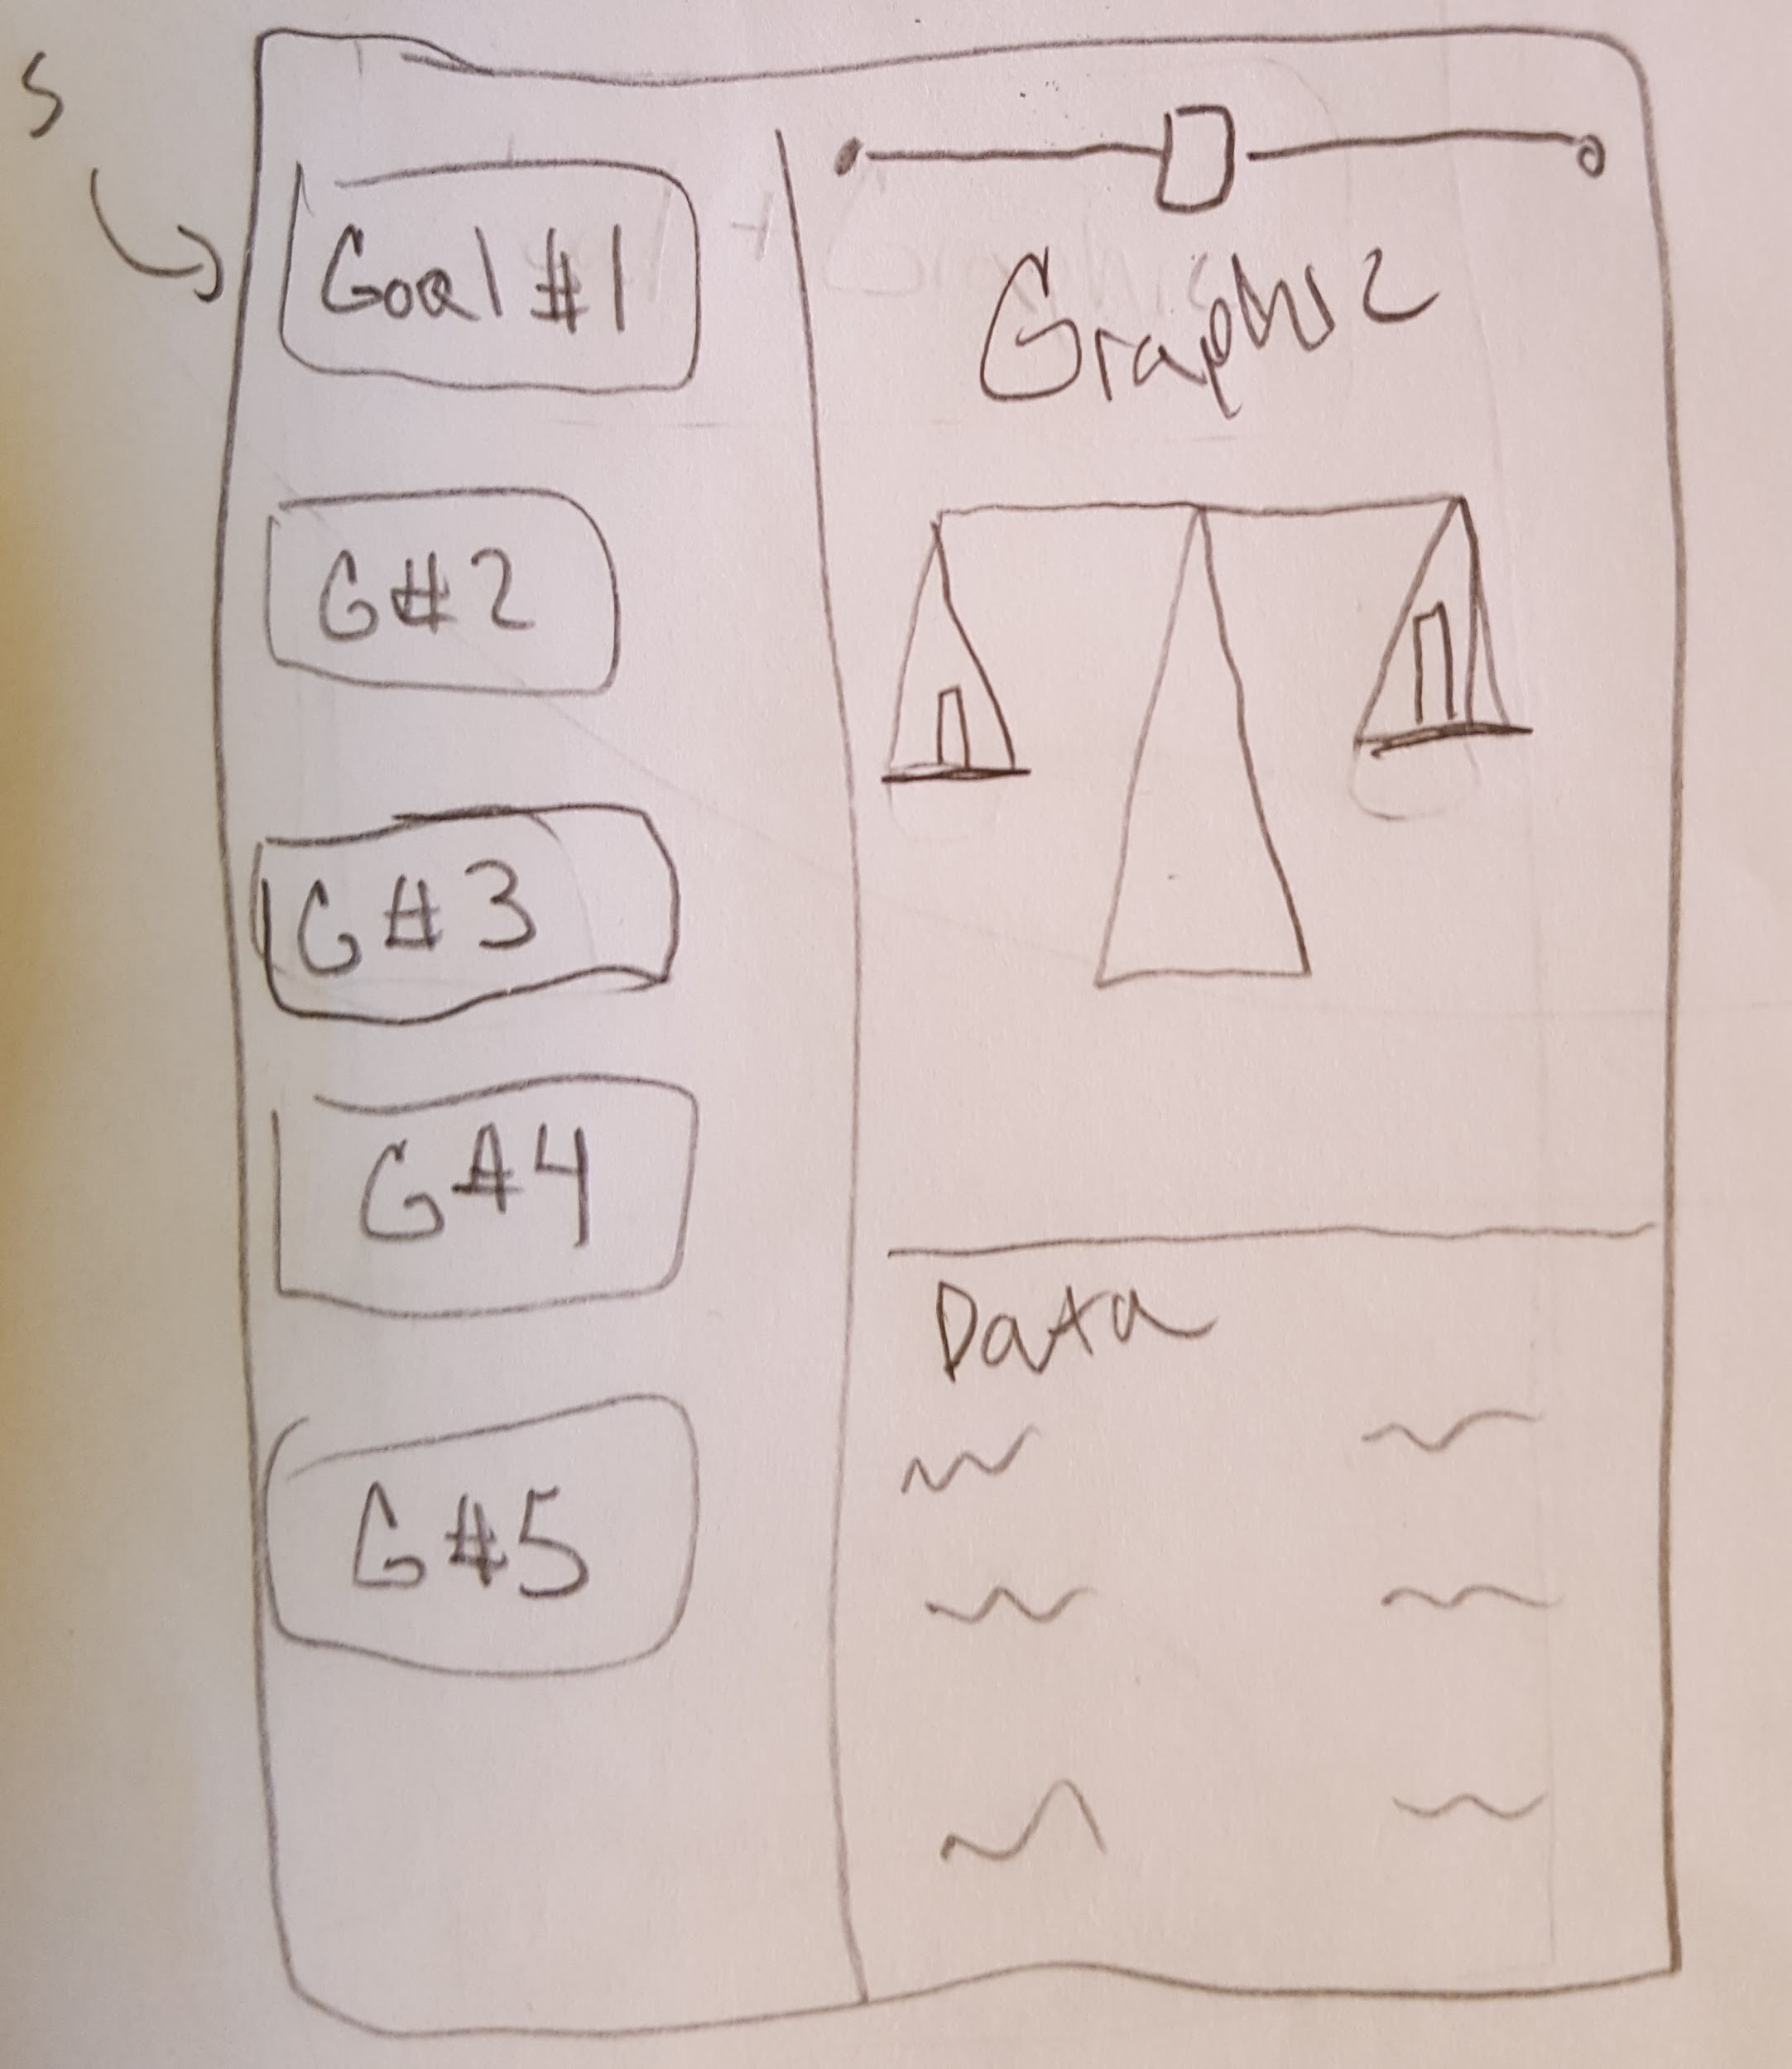 S
Goal #1
G#2
G#3
G#4
G#5
Graphic
Data